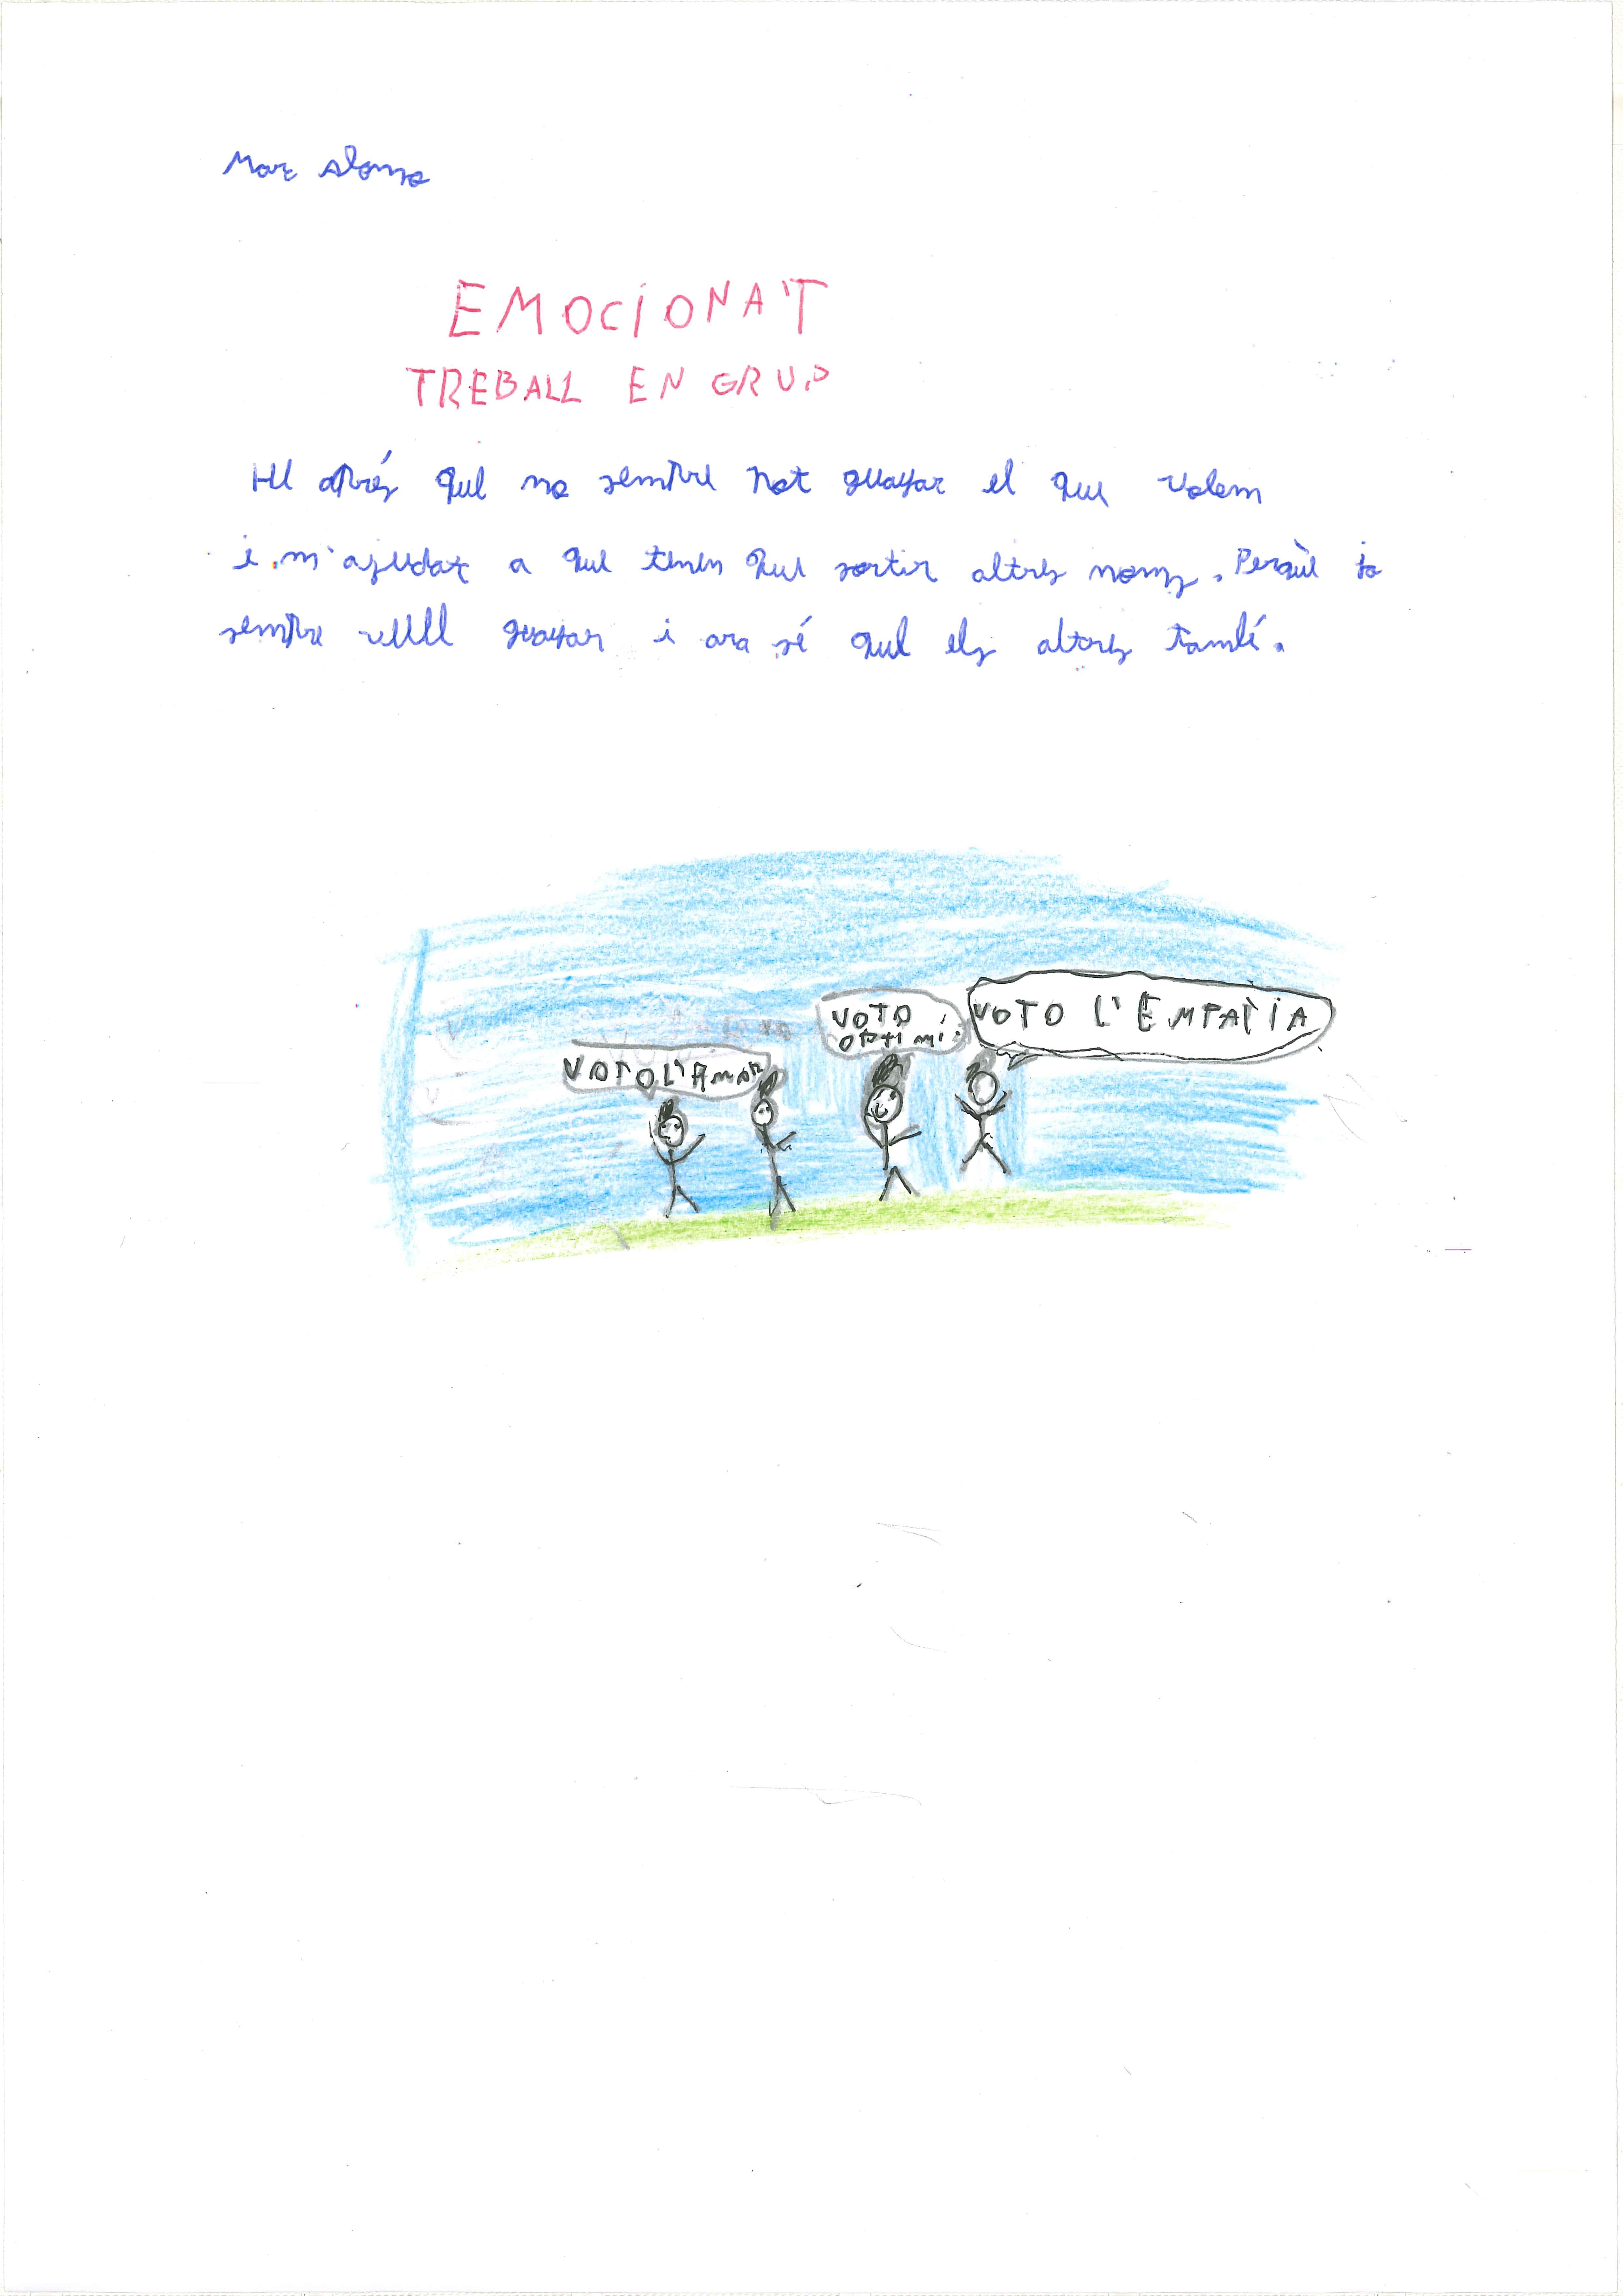 Marc Alonso
EMOCIONA'T
TREBALL EN GRUP
He aprés que no sempre pot guayar el que volem
i m'ajudat a que tenen que sortir altres noms. Perquè jo
sempre vull guayar i ara sé que els altres també.
VOTO L'EMPATIA
VOTO
OPTIMI
VOTO L'AMOR